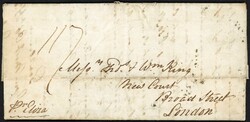 117
Messrs. Fred. & Wm. King
New Court
Broad Street
London
pr. Eliza